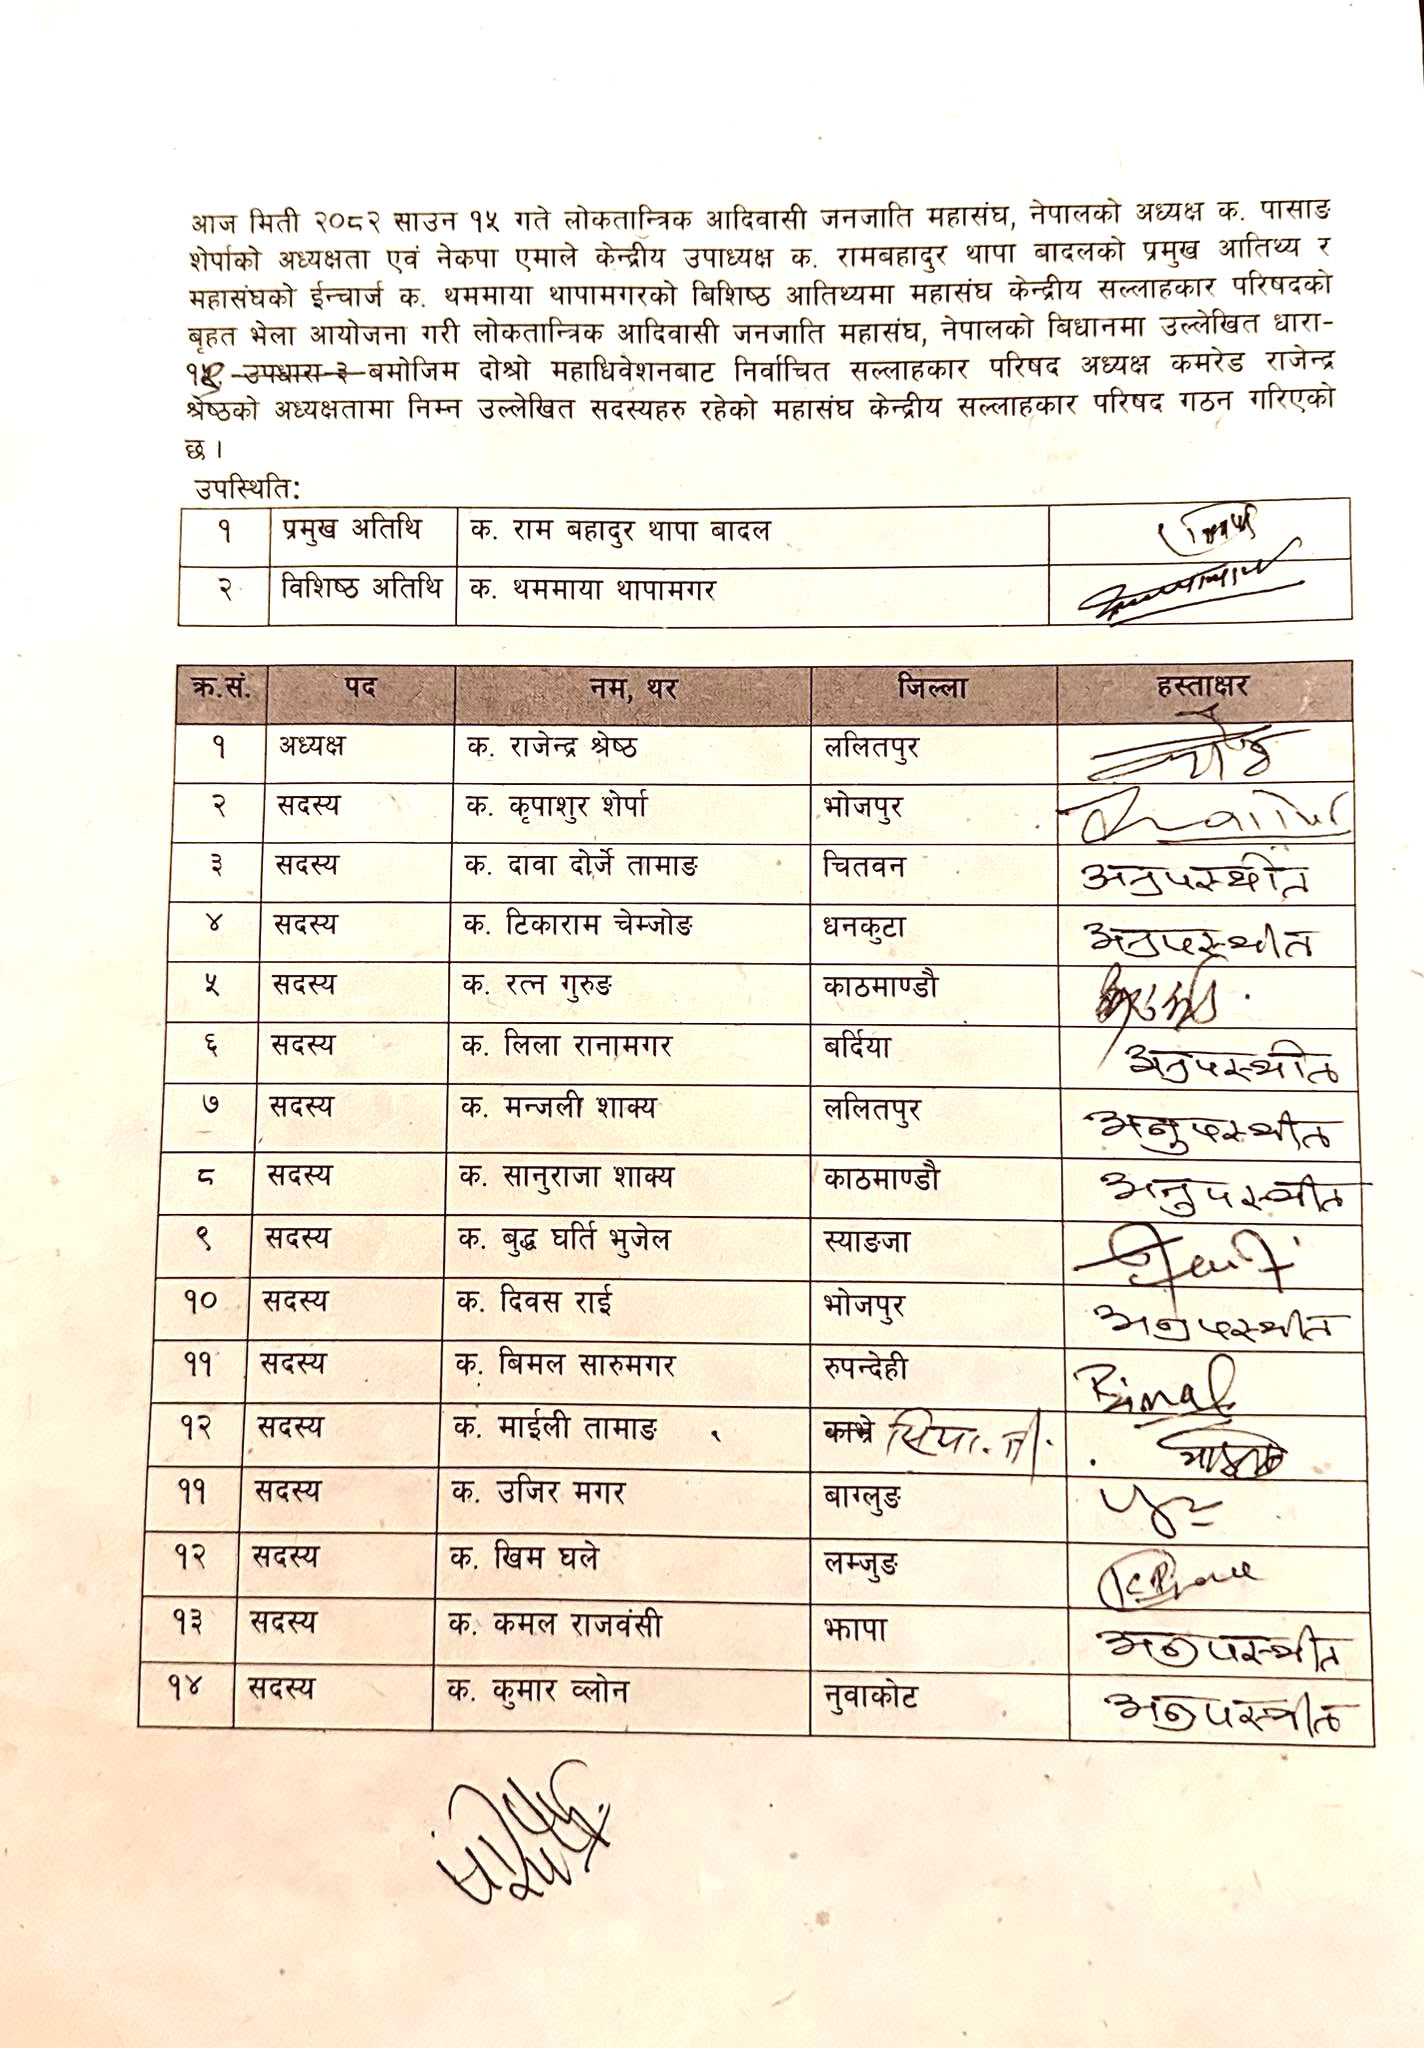 आज मिती २०८२ साउन १५ गते लोकतान्त्रिक आदिवासी जनजाति महासंघ, नेपालको अध्यक्ष क. पासाङ
शेर्पाको अध्यक्षता एवं नेकपा एमाले केन्द्रीय उपाध्यक्ष क. रामबहादुर थापा बादलको प्रमुख आतिथ्य र
महासंघको ईन्चार्ज क. थममाया थापामगरको बिशिष्ठ आतिथ्यमा महासंघ केन्द्रीय सल्लाहकार परिषदको
बृहत भेला आयोजना गरी लोकतान्त्रिक आदिवासी जनजाति महासंघ, नेपालको बिधानमा उल्लेखित धारा-
उपधारा ३ बमोजिम दोश्रो महाधिवेशनबाट निर्वाचित सल्लाहकार परिषद अध्यक्ष कमरेड राजेन्द्र
श्रेष्ठको अध्यक्षतामा निम्न उल्लेखित सदस्यहरु रहेको महासंघ केन्द्रीय सल्लाहकार परिषद गठन गरिएको
छ ।
उपस्थिति:
१ प्रमुख अतिथि क. राम बहादुर थापा बादल
२ विशिष्ठ अतिथि क. थममाया थापामगर
क्र.सं. पद नम, थर जिल्ला हस्ताक्षर
१ अध्यक्ष क. राजेन्द्र श्रेष्ठ ललितपुर
२ सदस्य क. कृपाशुर शेर्पा भोजपुर
३ सदस्य क. दावा दोर्जे तामाङ चितवन अनुपस्थीत
४ सदस्य क. टिकाराम चेम्जोङ धनकुटा अनुपस्थीत
५ सदस्य क. रत्न गुरुङ काठमाण्डौ
६ सदस्य क. लिला रानामगर बर्दिया अनुपस्थीत
७ सदस्य क. मन्जली शाक्य ललितपुर अनुपस्थीत
८ सदस्य क. सानुराजा शाक्य काठमाण्डौ अनुपस्थीत
९ सदस्य क. बुद्ध घर्ति भुजेल स्याङजा
१० सदस्य क. दिवस राई भोजपुर अनुपस्थीत
११ सदस्य क. बिमल सारुमगर रुपन्देही Bimal
१२ सदस्य क. माईली तामाङ काभ्रे
११ सदस्य क. उजिर मगर बाग्लुङ
१२ सदस्य क. खिम घले लम्जुङ
१३ सदस्य क. कमल राजवंसी झापा अनुपस्थीत
१४ सदस्य क. कुमार ब्लोन नुवाकोट अनुपस्थीत